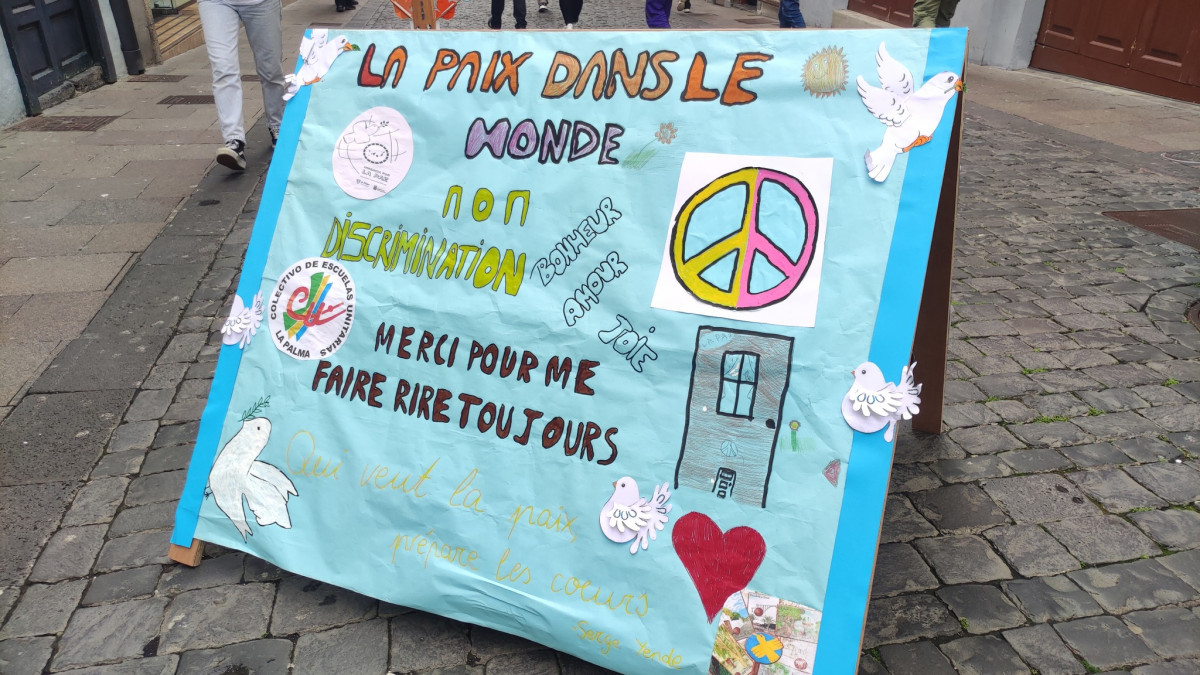 LA PAIX DANS LE
MONDE
LA PAZ
non
DISCRIMINATION
BONHEUR
AMOUR
JOIE
COLECTIVO DE ESCUELAS UNITARIAS
LA PALMA
MERCI POUR ME
FAIRE RIRE TOUJOURS
Qui veut la paix,
prépare les coeurs